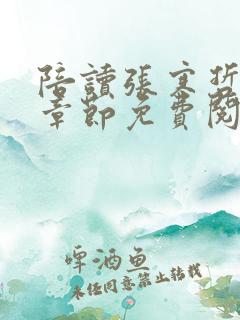 陪讀張寒哲
章節免費閱
啤酒魚
未经同意禁止转载